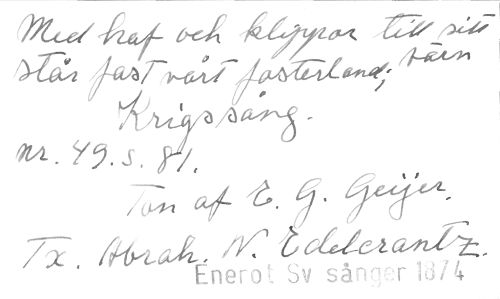 Med haf och klippor till sitt värn
står fast vårt fosterland;
Krigssång.
nr. 49. s. 81.
Ton af E. G. Geijer.
Tx. Abrah. N. Edelcrantz.
Enerot Sv sånger 1874